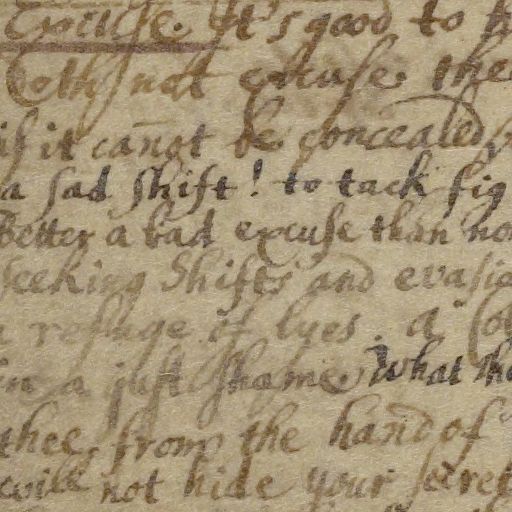 Excuse. It's good to
not excuse the
if it cannot be concealed
a sad shift! to tack fig
Better a bad excuse than non
seeking Shifts and evasie
refuge of lyes. a
in a just shame. What tho
thee, from the hand of
will not hide your secret